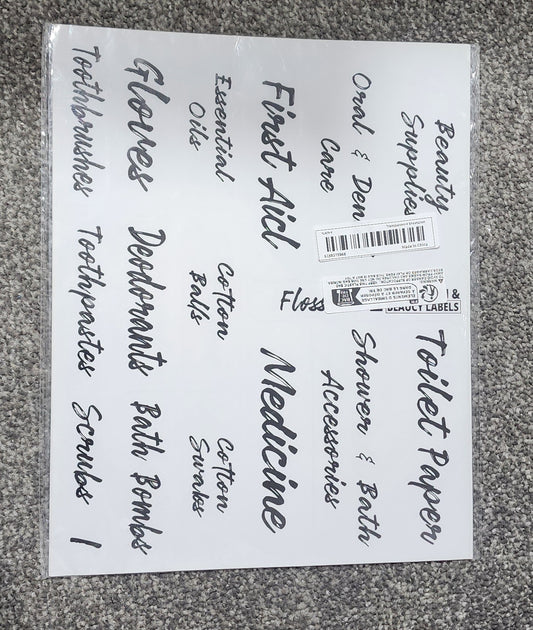 Beauty
Supplies
Toilet Paper
Oral & Den
Care
Shower & Bath
Accessories
Floss
&
LABELS
First Aid
Medicine
Essential
Oils
Cotton
Balls
Cotton
Swabs
Gloves
Deodorants
Bath Bombs
Toothbrushes
Toothpastes
Scrubs